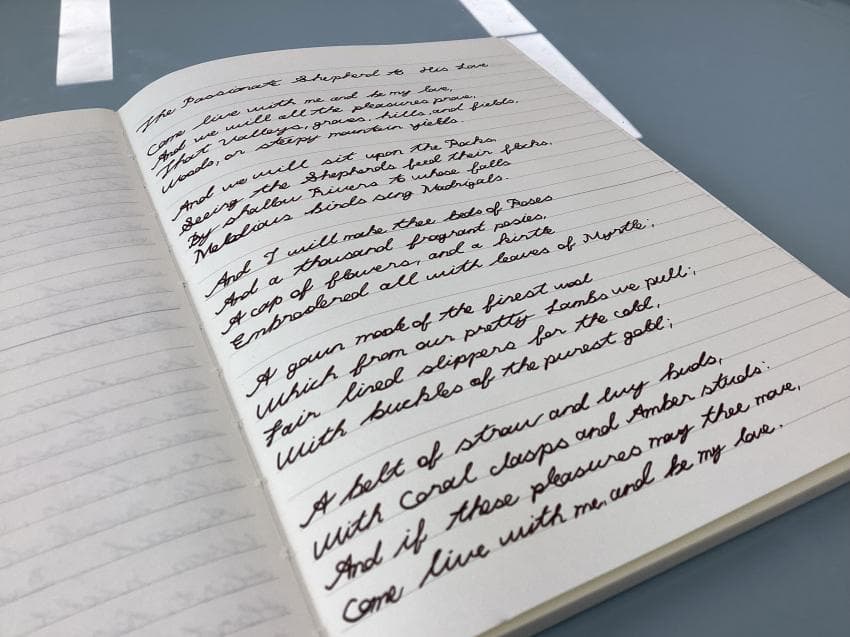 The Passionate Shepherd to His Love
Come live with me and be my love,
And we will all the pleasures prove,
That Valleys, groves, hills, and fields,
Woods, or steepy mountain yields.
And we will sit upon the Rocks,
Seeing the Shepherds feed their flocks,
By shallow Rivers to whose falls
Melodious birds sing Madrigals.
And I will make thee beds of Roses
And a thousand fragrant posies,
A cap of flowers, and a kirtle
Embroidered all with leaves of Myrtle;
A gown made of the finest wool
Which from our pretty Lambs we pull;
Fair lined slippers for the cold,
With buckles of the purest gold;
A belt of straw and Ivy buds,
With Coral clasps and Amber studs:
And if these pleasures may thee move,
Come live with me, and be my love.